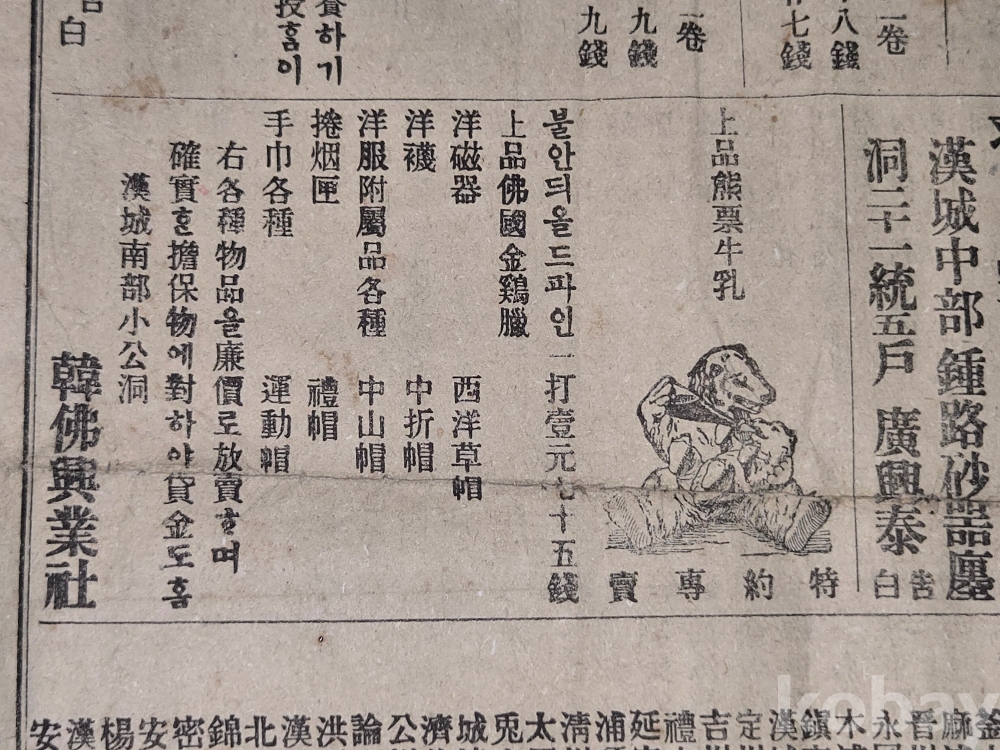 一卷
十八錢
廿七錢
一卷
九錢
九錢
養하기
投홈이
告白
漢城中部鍾路砂器廛
洞二十一統五戶 廣興泰
告白
上品熊票牛乳
特約專賣
불안듸올드파인一打壹元七十五錢
上品佛國金鷄臘
洋磁器 西洋草帽
洋襪 中折帽
洋服附屬品各種 中山帽
捲烟匣 禮帽
手巾各種 運動帽
右各種物品을廉價로放賣ᄒᆞ며
確實ᄒᆞᆫ擔保物에對하야貸金도홈
漢城南部小公洞
韓佛興業社
釜
麻
晉
永
木
鎮
漢
定
吉
禮
延
浦
淸
太
兎
城
濟
公
論
洪
漢
北
錦
密
安
楊
漢
安
kobay